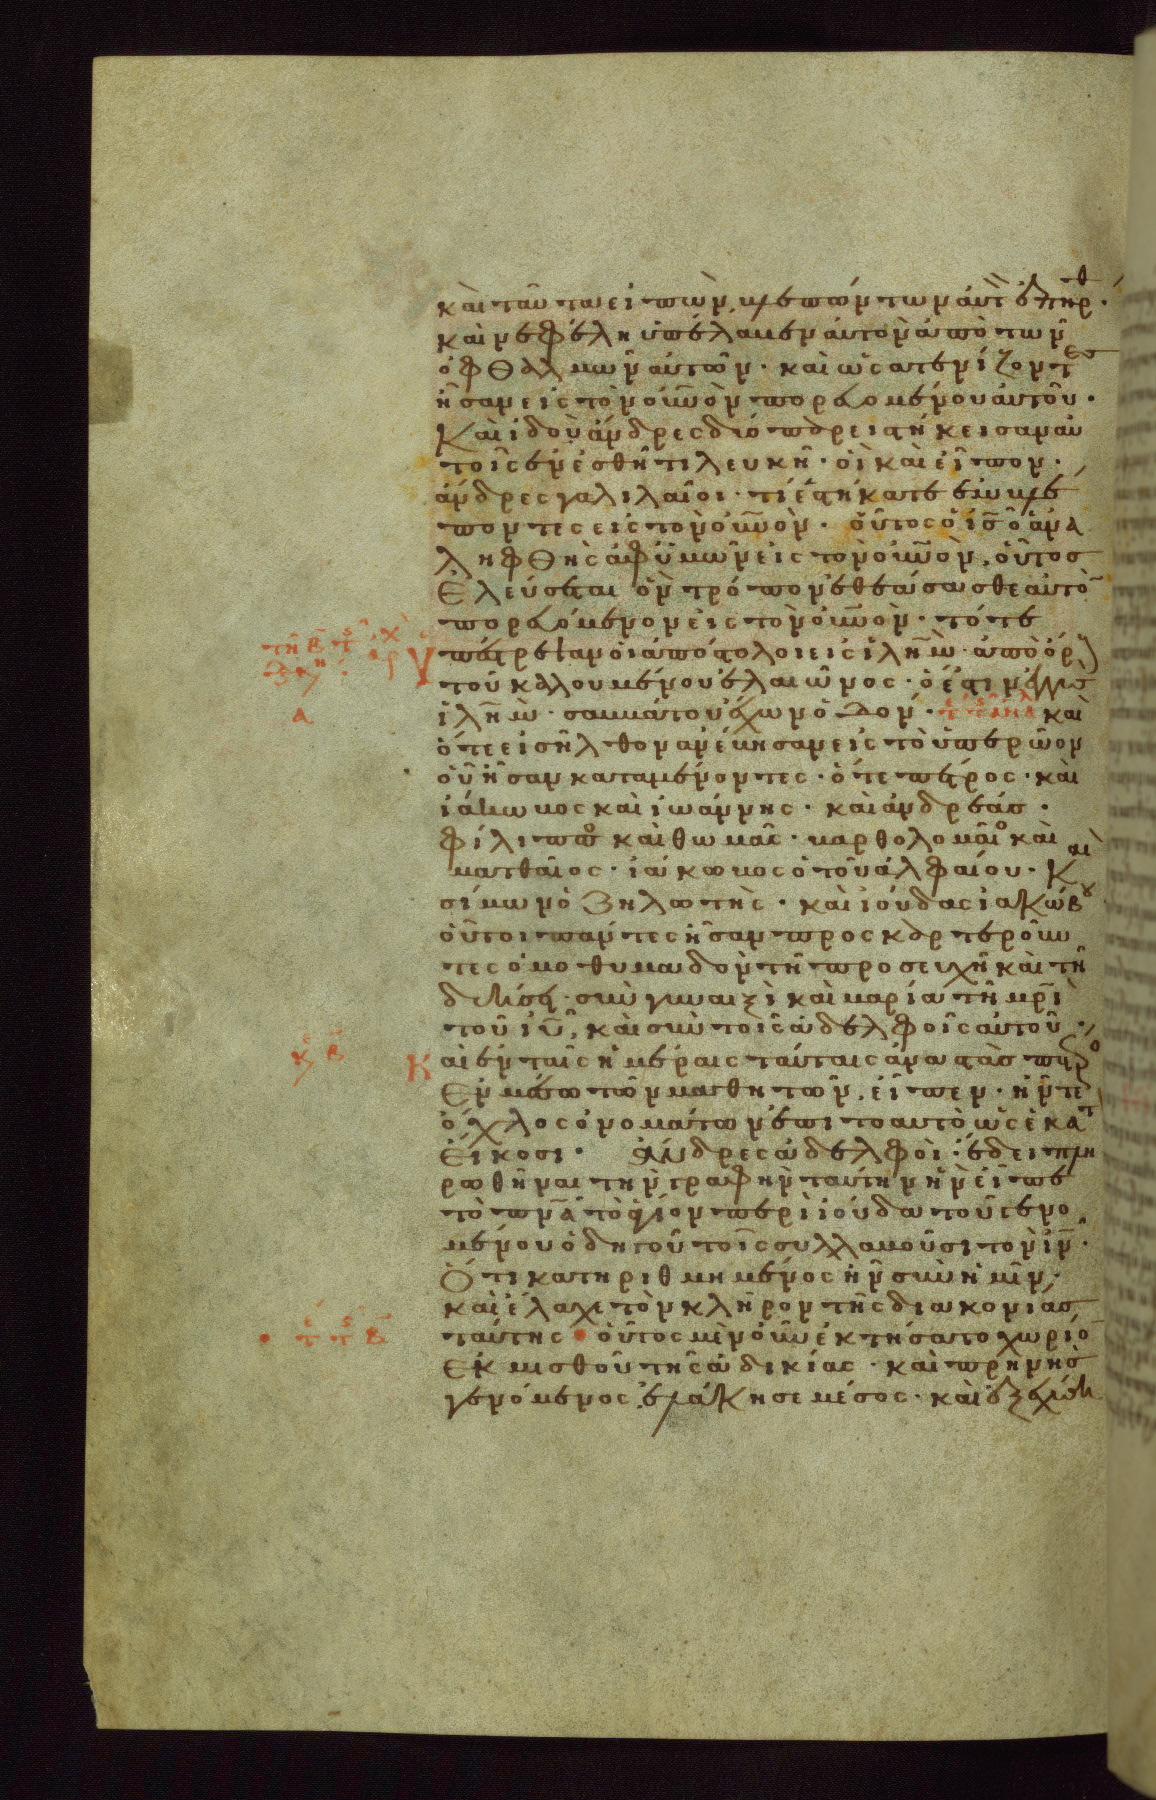 καὶ ταῦτα εἰπὼν, βλεπόντων αὐτ ἐπήρθ·
καὶ νεφέλη ὑπέλαβεν αὐτὸν ἀπὸ τῶν
ὀφθαλμῶν αὐτῶν· καὶ ὡς ἀτενίζοντες
ἦσαν εἰς τὸν οὐνὸν πορευομένου αὐτοῦ·
Καὶ ἰδοὺ ἄνδρες δύο παρειστήκεισαν αὐ
τοῖς ἐν ἐσθῆτι λευκῆ· οἱ καὶ εἶπον·
ἄνδρες γαλιλαῖοι· τί ἑστήκατε ἐμβλέ
ποντες εἰς τὸν οὐνὸν· οὗτος ὁ ις ὁ ἀνα
ληφθὴς ἀφ ὑμῶν εἰς τὸν οὐνὸν, οὕτος
ἐλεύσεται ὃν τρόπον ἐθεάσασθε αὐτὸ
πορευόμενον εἰς τὸν οὐνὸν· τότε
ὑπέστρεψαν οἱ ἀπόστολοι εἰς ἱλημ· ἀπὸ ὄρ
τοῦ καλουμένου ἐλαιῶνος· ὅ ἐστιν ἐγγὺς
ἱλημ· σαββάτου ἔχων ὁδόν· καὶ
ὅτε εἰσῆλθον ἀνέβησαν εἰς τὸ ὑπερῶον
οὗ ἦσαν καταμένοντες· ὅ τε πέτρος· καὶ
ἰάκωβος καὶ ἰωάννης· καὶ ἀνδρέας·
φίλιππο καὶ θωμᾶς· βαρθολομαῖο καὶ
ματθαῖος· ἰάκωβος ὁ τοῦ ἀλφαίου· Καὶ
σίμων ὁ ζηλωτὴς· καὶ ἰούδας ἰακώβου
οὗτοι πάντες ἦσαν προσκαρτεροῦν
τες ὁμοθυμαδὸν τῆ προσευχῆ καὶ τῆ
δεήσει· σὺν γυναιξὶ καὶ μαρία τῆ μρὶ
τοῦ ιυ, καὶ σὺν τοῖς ἀδελφοῖς αὐτοῦ·
Καὶ ἐν ταῖς ἡμέραις ταύταις ἀναστὰς πέτρο
ἐν μέσω τῶν μαθητῶν, εἶπεν· ἦν τε
ὄχλος ὀνομάτων ἐπὶ τοαυτὸ ὡς ἑκατ
εἴκοσι· ἄνδρες ἀδελφοὶ· ἔδει πλη
ρωθῆναι τὴν γραφὴν ταύτην ἣν εἶπε
τὸ πνα τὸ ἅγιον περὶ ἰούδα τοῦ γενο
μένου ὁδηγοῦ τοῖς συλλαβοῦσι τὸν ιν·
ὅτι κατηριθμημένος ἦν σὺν ἡμῖν·
καὶ ἔλαχε τὸν κλῆρον τῆς διακονίας
ταύτης· οὗτος μὲν οὖν ἐκτήσατο χωρίο
ἐκ μισθοῦ τῆς ἀδικίας· καὶ πρηνὴς
γενόμενος ἐλάκησε μέσος· καὶ ἐξεχύθη